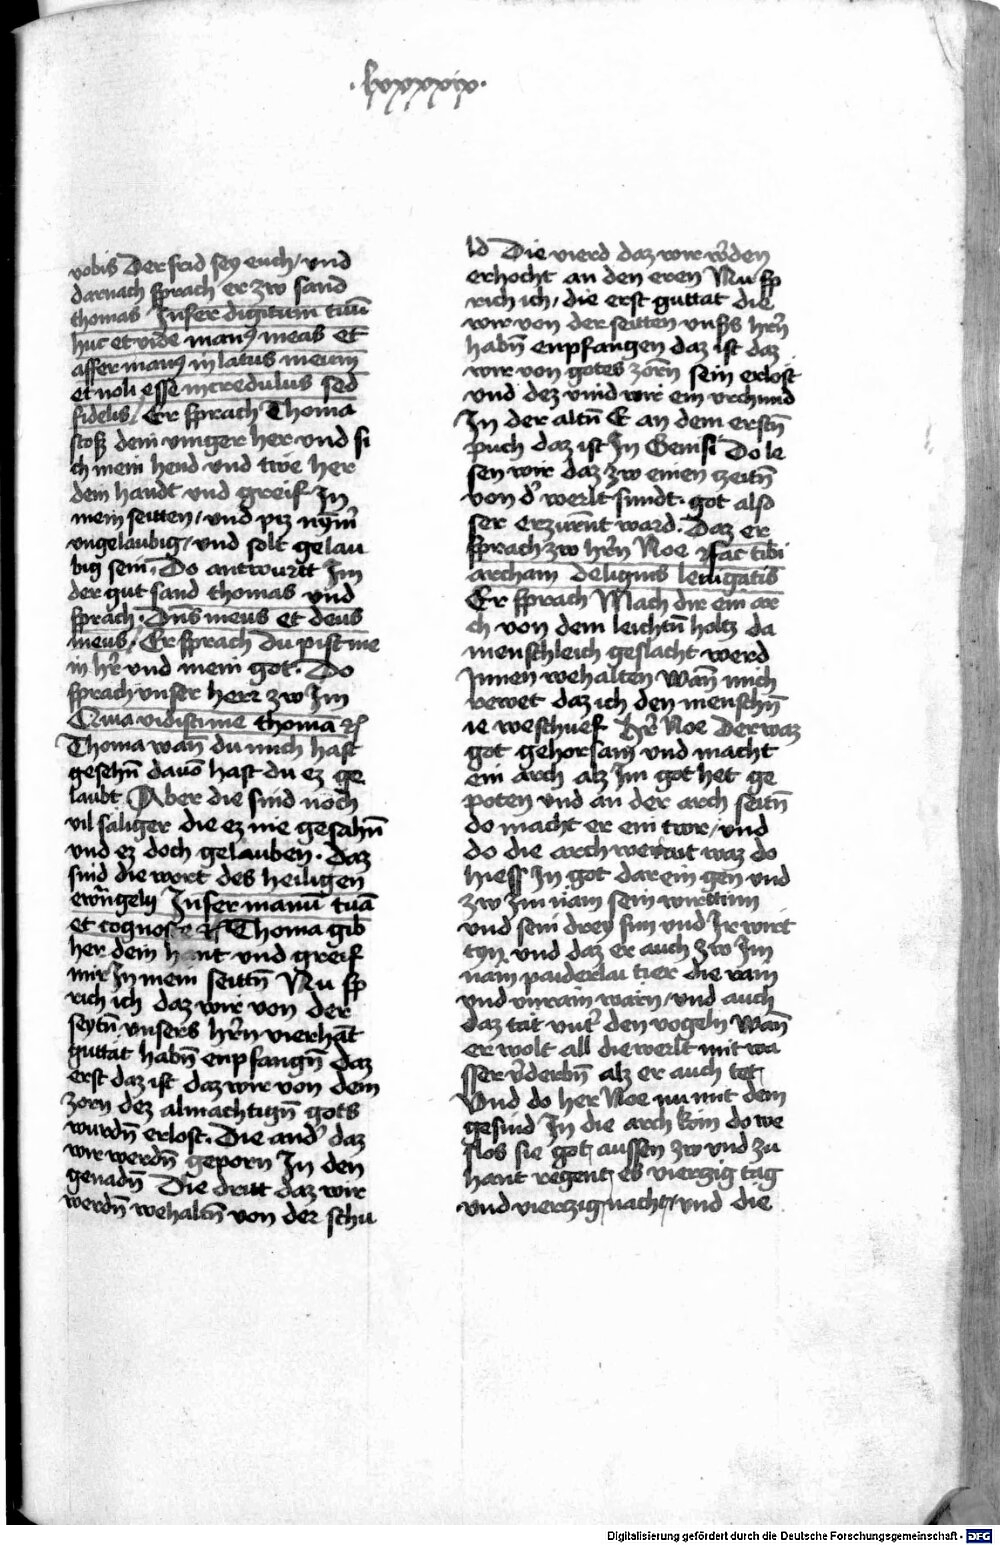 .lxxxxix.
vobis Der frid sey euch / und
darnach sprach er zw sand
thomas Infer digitum tuū
huc et vide manꝰ meas et
affer manꝰ in latus meum
et noli esse incredulus sed
fidelis / Er sprach Thoma
stoss dein vinger her und si
ch mein hend und twe her
dein handt und greif In
mein seitten / und piz nym̄
ungelaubig / und solt gelau
big sein. Do antwurtt Im
der gut sand thomas und
sprach. Dn̄s meus et deus
meus / Er sprach du pist me
in hr̄ und mein got. Do
sprach unser herr zw Im
Quia vidisti me thoma ⁊c
Thoma wan̄ du mich hast
gesehn̄ davō hast du ez ge
laubt Aber die sind noch
vil saliger die ez nie gesahn̄
und ez doch gelauben. Daz
sind die wort des heiligen
ewangely Infer manū tuā
et cognosce ⁊c Thoma gib
her dein hant und greif
mir In mein seittn̄ Nu sp
rich ich daz wir von der
seytn̄ unsers hr̄n vierhāt
guttat habn̄ enpfangn̄ daz
erst daz ist daz wir von dem
zorn dez almachtign̄ gots
wurdn̄ erlost. Die and' daz
wir werdn̄ geporn In den
genadn̄ Die dritt daz wir
werdn̄ wehaltn̄ von der schu
ld Die vierd daz wir w̄den
erhocht an den eren Nu sp
rich ich / die erst guttat die
wir von der seitten unß̄s hr̄n
habn̄ enpfangen daz ist daz
wir von gotes zorn̄ sein erlost
und dez vind wir ein urchund
In der altn̄ E an dem erstn̄
puch daz ist In Genisi Do le
sen wir daz zw einen czeitn̄
von d' werlt sundt. got also
ser erzurnt ward. Daz er
sprach zw hr̄n Noe fac tibi
archam de lignis levigatis
Er sprach Mach dir ein ar
ch von dem leichtn̄ holtz da
menschleich geslacht werd
Innen wehalten wan̄ mich
rewet daz ich den menschn̄
ie weschuef hr̄ Noe Der waz
got gehorsam und macht
ein arch alz Im got het ge
poten und an der arch seitn̄
do macht er ein twr / und
do die arch werait waz do
hiess In got darein gen und
zw Im nam sein wirttinn
und sein drey sun und Ir wirt
tyn und daz er auch zw Im
nam paiderlai tier die rain
und unrain warn / und auch
daz tat unt' den vogeln wan̄
er wolt all die werlt mit wa
sser v̄derbn̄ alz er auch tet
Und do her Noe nu mit dem
gesind In die arch kom do we
slos sie got aussen zw und zu
hant regent es vierzig tag
und vierczig nacht / und die
Digitalisierung gefördert durch die Deutsche Forschungsgemeinschaft - DFG